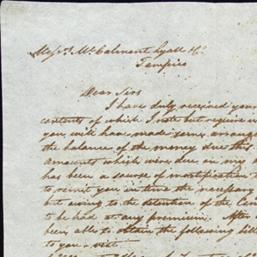 Messrs McCalmont Lyall &Co
Tampico
Dear Sirs
I have duly received your
contents of which I note but regret
you will have made some arrange
the balance of the money due this
amounts which were due on my
has been a source of mortification
to remit you in time the necessary
but owing to the detention of the
to be had at any premium. After
been able to obtain the following bill
to you a visit